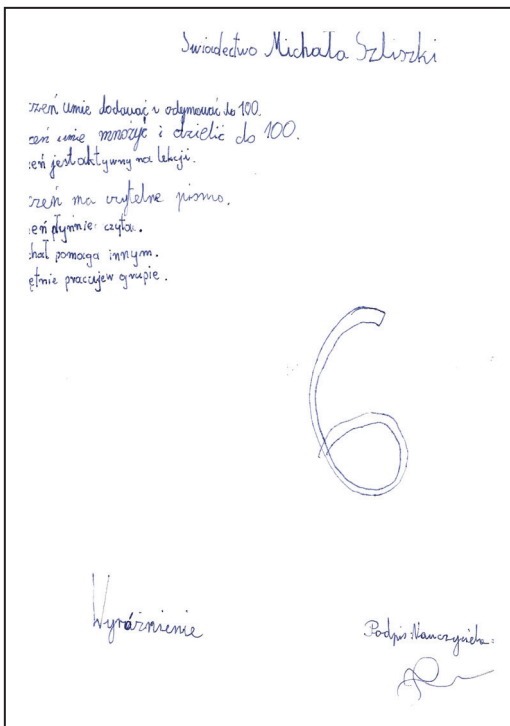 Świadectwo Michała Szliszki
czeń umie dodawać i odejmować do 100.
zeń umie mnożyć i dzielić do 100.
eń jest aktywny na lekcji.
czeń ma czytelne pismo.
eń płynnie czyta.
chał pomaga innym.
ętnie pracuje w grupie.
6
Wyróżnienie
Podpis Nauczyciela: